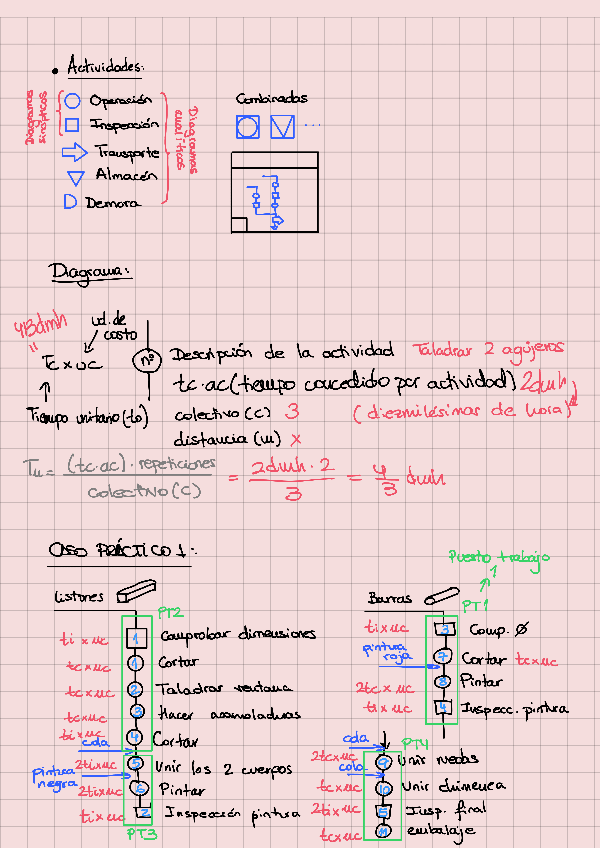 • Actividades:
Diagramas sinópticos
Operación
Inspección
Transporte
Almacén
Demora
Diagramas analíticos
Combinadas
...
Diagrama:
ud. de costo
tc x uc
Tiempo unitario (to)
nº
Descripción de la actividad Taladrar 2 agujeros
tc·ac (tiempo concedido por actividad) 2dmh
colectivo (c) 3 (diezmilésimas de hora)
distancia (m) x
Tu = (tc·ac) · repeticiones / colectivo (c) = 2dmh · 2 / 3 = 4/3 dmh
CASO PRÁCTICO 1:
Puesto trabajo
Listones
PT2
ti x uc 1 Comprobar dimensiones
tc x uc 1 Cortar
tc x uc 2 Taladrar ventana
tc x uc 3 Hacer acanaladuras
ti x uc 4 Cortar
cola
2ti x uc 5 Unir los 2 cuerpos
pintura negra
2ti x uc 6 Pintar
ti x uc 2 Inspección pintura
PT3
Barras
PT1
ti x uc 3 Comp. Ø
pintura roja
7 Cortar tc x uc
2tc x uc 8 Pintar
ti x uc 4 Inspecc. pintura
cola
PT4
2tc x uc 9 Unir ruedas
cola
tc x uc 10 Unir chimenea
2ti x uc 5 Insp. final
tc x uc 11 embalaje